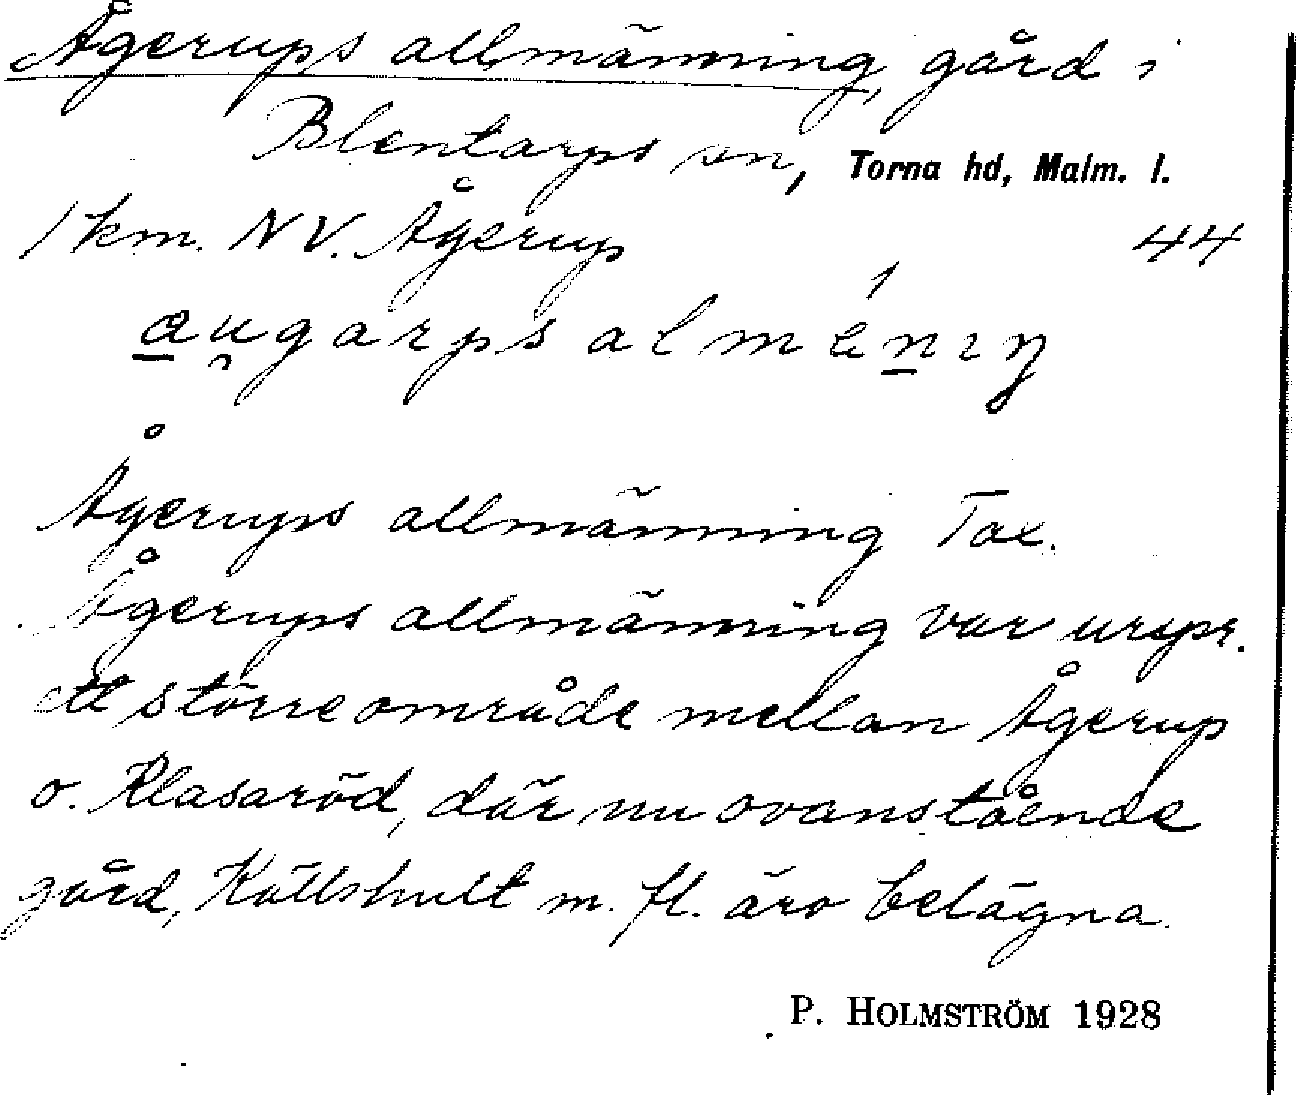 Ågerups allmänning, gård i
Blentarps sn, Torna hd, Malm. l.
1 km. NV. Ågerup 44
au̯garps almɛ́nıŋ
Ågerups allmänning Tax.
Ågerups allmänning var urspr.
ett större område mellan Ågerup
o. Klasaröd, där nu ovanstående
gård, Källshult m. fl. äro belägna.
P. HOLMSTRÖM 1928